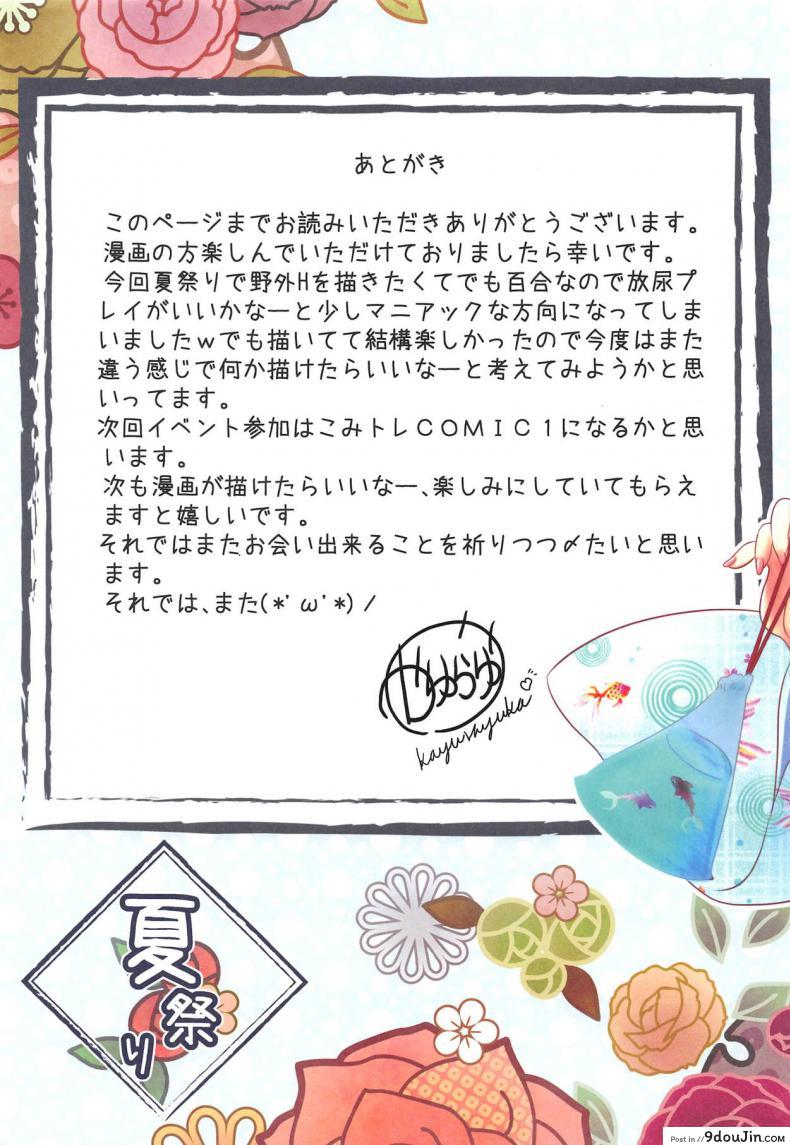 あとがき
このページまでお読みいただきありがとうございます。
漫画の方楽しんでいただけておりましたら幸いです。
今回夏祭りで野外Hを描きたくてでも百合なので放尿プ
レイがいいかなーと少しマニアックな方向になってしま
いましたｗでも描いてて結構楽しかったので今度はまた
違う感じで何か描けたらいいなーと考えてみようかと思
いってます。
次回イベント参加はこみトレＣＯＭＩＣ１になるかと思
います。
次も漫画が描けたらいいなー、楽しみにしていてもらえ
ますと嬉しいです。
それではまたお会い出来ることを祈りつつ〆たいと思い
ます。
それでは、また(*'ω'*)ﾉ
かゆらゆか
kayurayuka
夏祭り
Post in // 9douJin.com